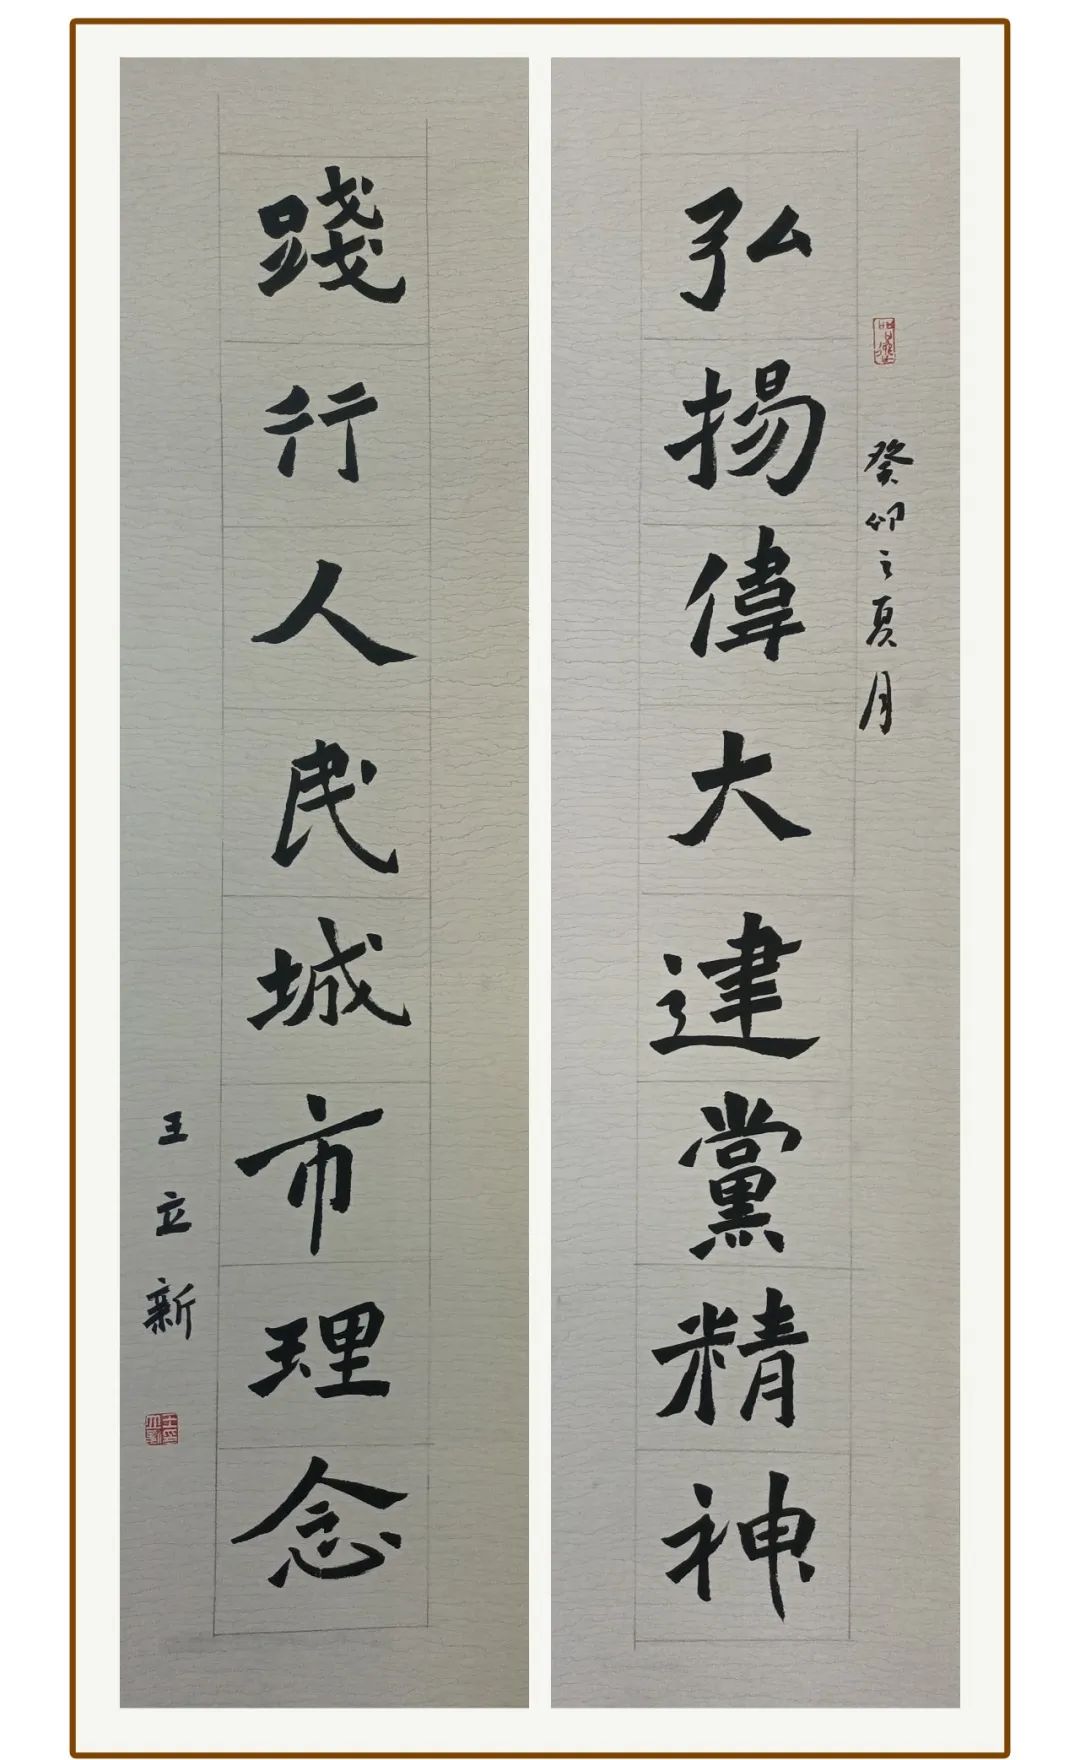 癸卯之夏月
弘揚偉大建黨精神
踐行人民城市理念
王立新